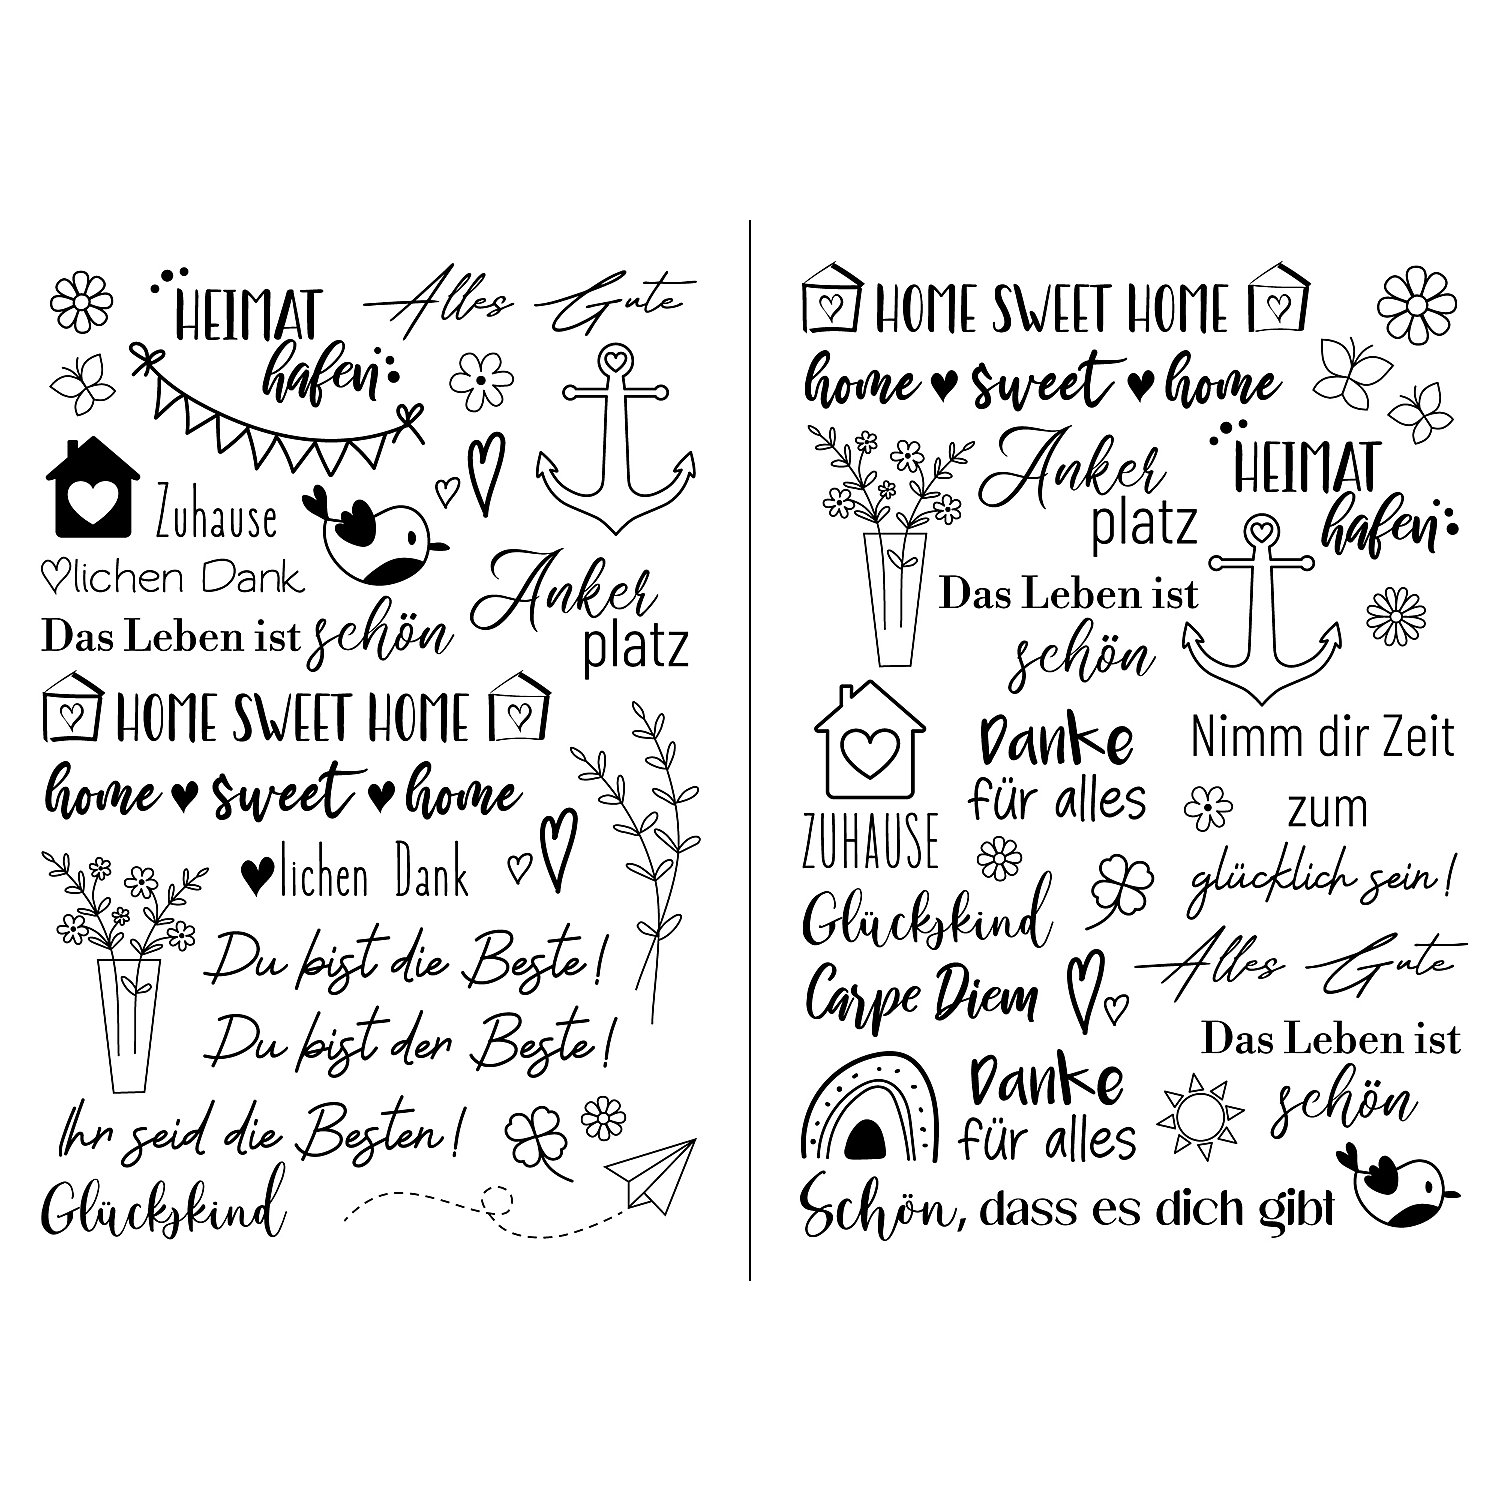 HEIMAT
hafen
Alles Gute
Zuhause
lichen Dank
Das Leben ist schön
Anker
platz
HOME SWEET HOME
home sweet home
lichen Dank
Du bist die Beste!
Du bist der Beste!
Ihr seid die Besten!
Glückskind
HOME SWEET HOME
home sweet home
Anker
platz
HEIMAT
hafen
Das Leben ist
schön
Danke
für alles
Nimm dir Zeit
zum
glücklich sein!
ZUHAUSE
Glückskind
Carpe Diem
Alles Gute
Das Leben ist
schön
Danke
für alles
Schön, dass es dich gibt